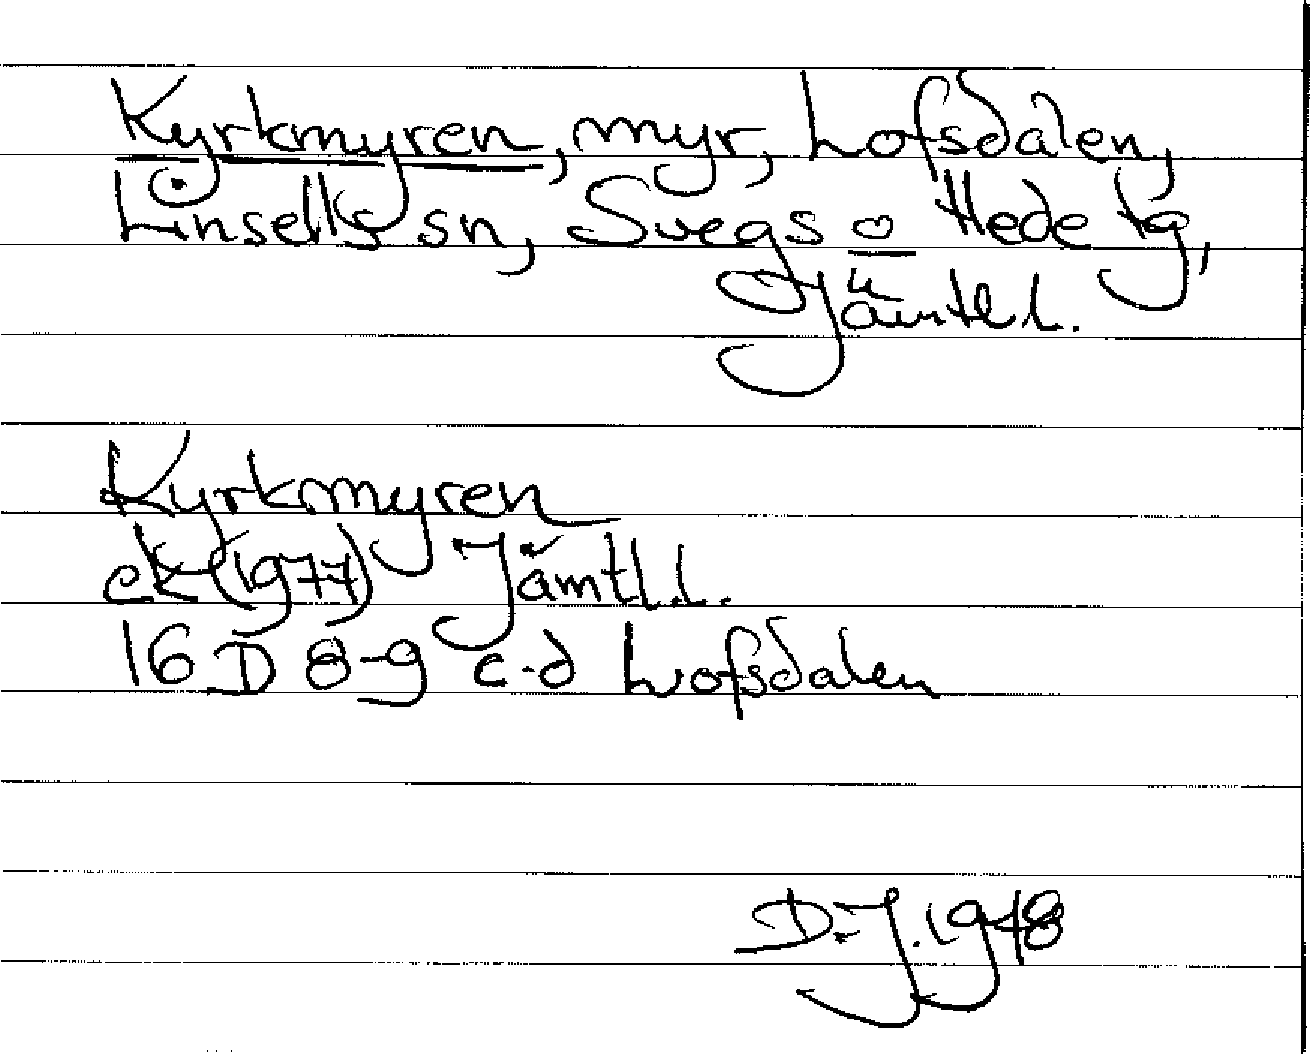 Kyrkmyren, myr, Lofsdalen,
Linsells sn, Svegs o Hede tg,
Jämtl l.
Kyrkmyren
ek (1977) Jämtl.l.
16 D 8-9 c-d Lofsdalen
D.J. 1948